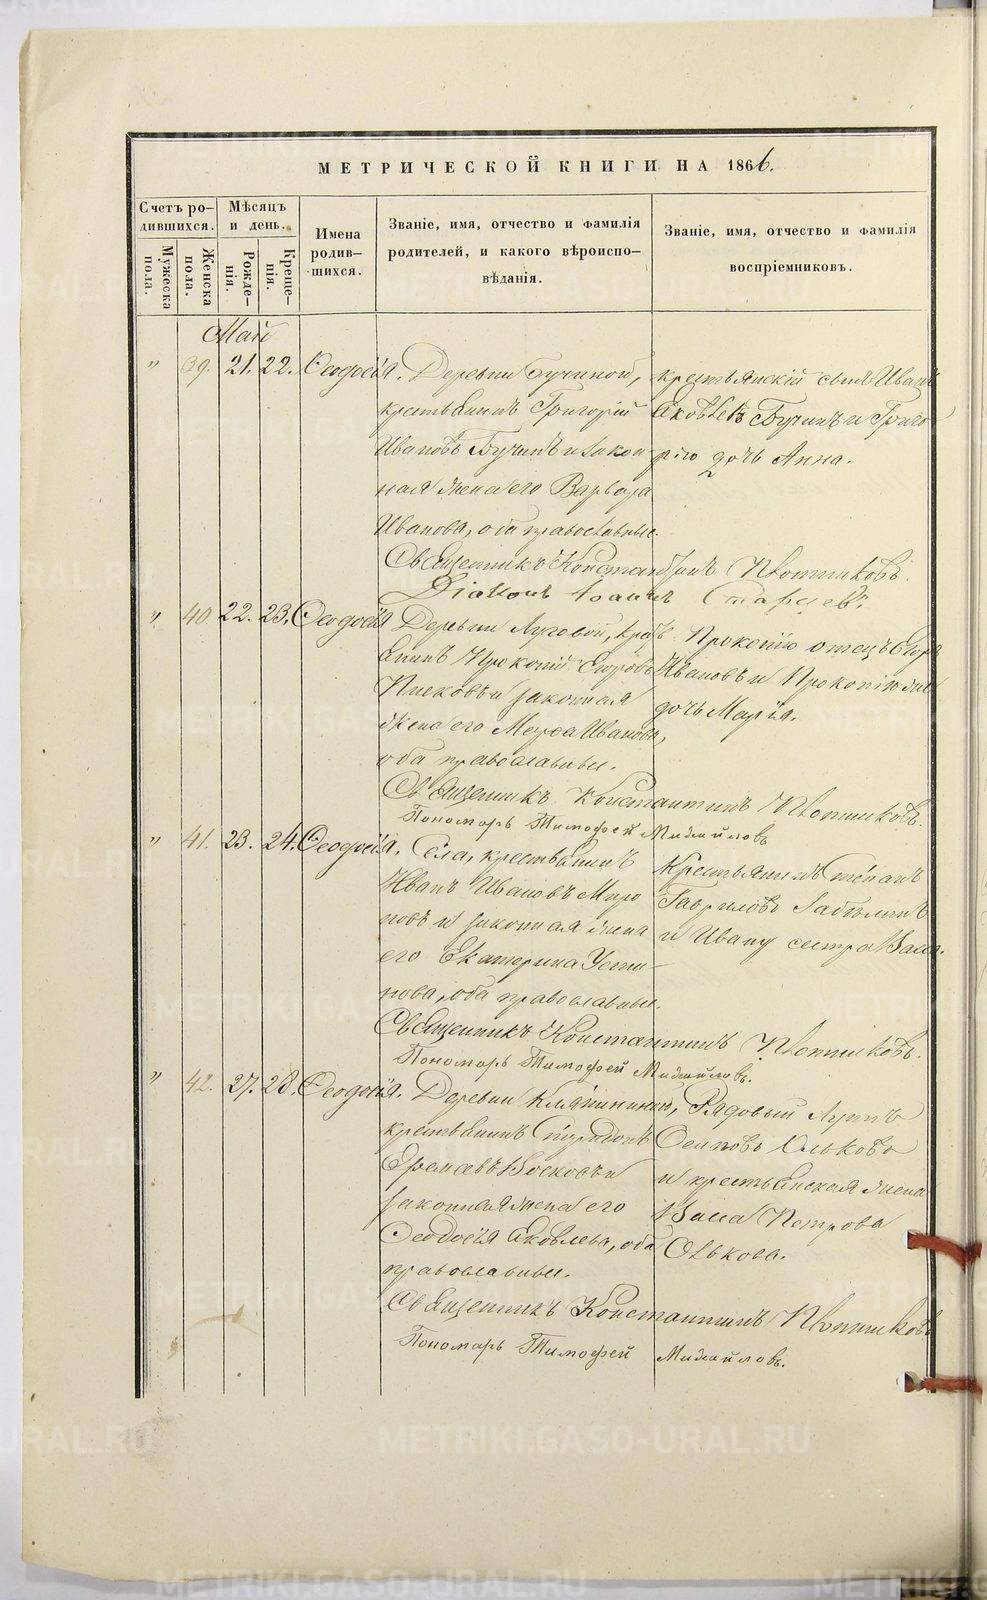 МЕТРИЧЕСКОЙ КНИГИ НА 1866.
Счетъ ро-
дившихся.
Мужеска
пола.
Женска
пола.
Мѣсяцъ
и день.
Рожде-
нія.
Креще-
нія.
Имена
родив-
шихся.
Званіе, имя, отчество и фамилія
родителей, и какого вѣроиспо-
вѣданія.
Званіе, имя, отчество и фамилія
воспріемниковъ.
Май
" 39. 21. 22. Ѳеодосія. Деревни Бучиной,
крестьянинъ Григорій
Ивановъ Бучинъ и закон
ная жена его Варвара
Иванова, оба православные.
крестьянскій сынъ Иванъ
Яковлевъ Бучинъ и Григо
рію дочь Анна.
Священникъ Константинъ Плотниковъ.
Діаконъ Іоаннъ Старцевъ.
" 40 22. 23. Ѳеодосія Деревни Луговой, крест
янинъ Прокопій Егоровъ
и законная
жена его Марѳа Иванова,
оба православные.
Прокопію отецъ Егоръ
Ивановъ и Прокопію же
дочь Марія.
Священникъ Константинъ Плотниковъ.
Пономарь Тимофей Михайловъ
" 41. 23. 24. Ѳеодосія. Села, крестьянинъ
Иванъ Ивановъ Миро
новъ и законная жена
его Екатерина Усти-
нова, оба православные.
Крестьянинъ Степанъ
Гавриловъ Забѣлинъ
и Ивану сестра Васса.
Священникъ Константинъ Плотниковъ.
Пономарь Тимофей Михайловъ.
" 42. 27. 28. Ѳеодосія. Деревни
крестьянинъ Спиридонъ
и
законная жена его
Ѳеодосія Яковлева, оба
православные.
Рядовый Лупъ
Осиповъ Ольковъ
и крестьянская жена
Васса Петрова
Олькова.
Священникъ Константинъ Плотниковъ
Пономарь Тимофей Михайловъ.
METRIKI.GASO-URAL.RU